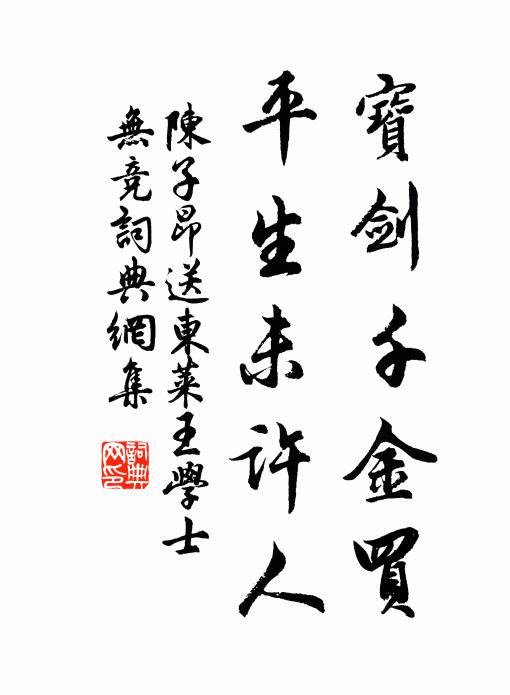 寶劍千金買
平生未許人
陳子昂送東萊王學士
無競詞典網集
詞典
网印